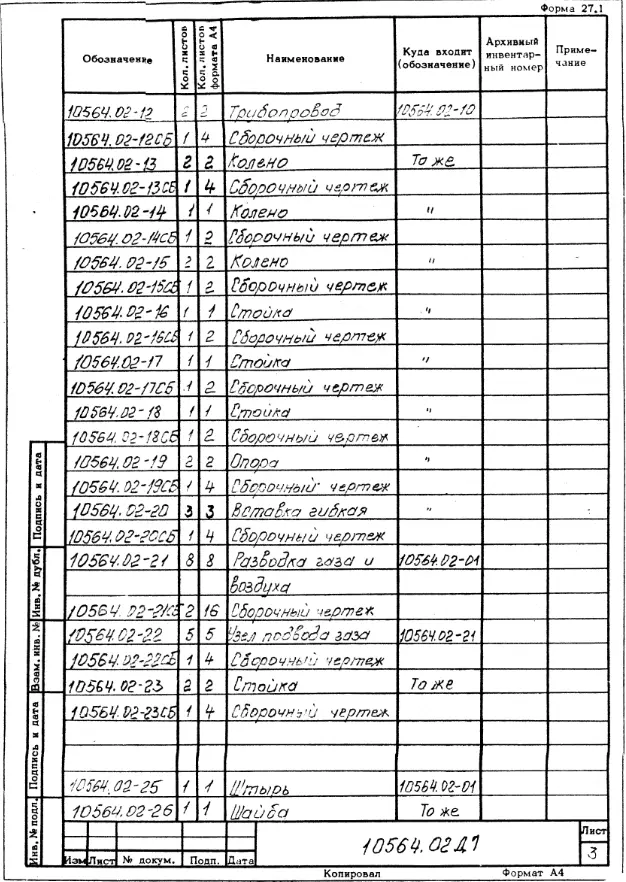 Форма 27.1
Обозначение Кол. листов Кол. листов формата А4 Наименование Куда входит (обозначение) Архивный инвентарный номер Примечание
10564.02-12 2 2 Трубопровод 10564.02-10
10564.02-12СБ 1 4 Сборочный чертеж
10564.02-13 2 2 Колено То же
10564.02-13СБ 1 4 Сборочный чертеж
10564.02-14 1 1 Колено "
10564.02-14СБ 1 2 Сборочный чертеж
10564.02-15 2 2 Колено "
10564.02-15СБ 1 2 Сборочный чертеж
10564.02-16 1 1 Стойка "
10564.02-16СБ 1 2 Сборочный чертеж
10564.02-17 1 1 Стойка "
10564.02-17СБ 1 2 Сборочный чертеж
10564.02-18 1 1 Стойка "
10564.02-18СБ 1 2 Сборочный чертеж
10564.02-19 2 2 Опора "
10564.02-19СБ 1 4 Сборочный чертеж
10564.02-20 3 3 Вставка гибкая "
10564.02-20СБ 1 4 Сборочный чертеж
10564.02-21 8 8 Разводка газа и 10564.02-01
воздуха
10564.02-21СБ 2 16 Сборочный чертеж
10564.02-22 5 5 Узел подвода газа 10564.02-21
10564.02-22СБ 1 4 Сборочный чертеж
10564.02-23 2 2 Стойка То же
10564.02-23СБ 1 4 Сборочный чертеж
10564.02-25 1 1 Штырь 10564.02-01
10564.02-26 1 1 Шайба То же
Инв. № подл. Подпись и дата Взам. инв. № Инв. № дубл. Подпись и дата
10564.02Д1
Лист
3
Изм Лист № докум. Подп. Дата
Копировал Формат А4